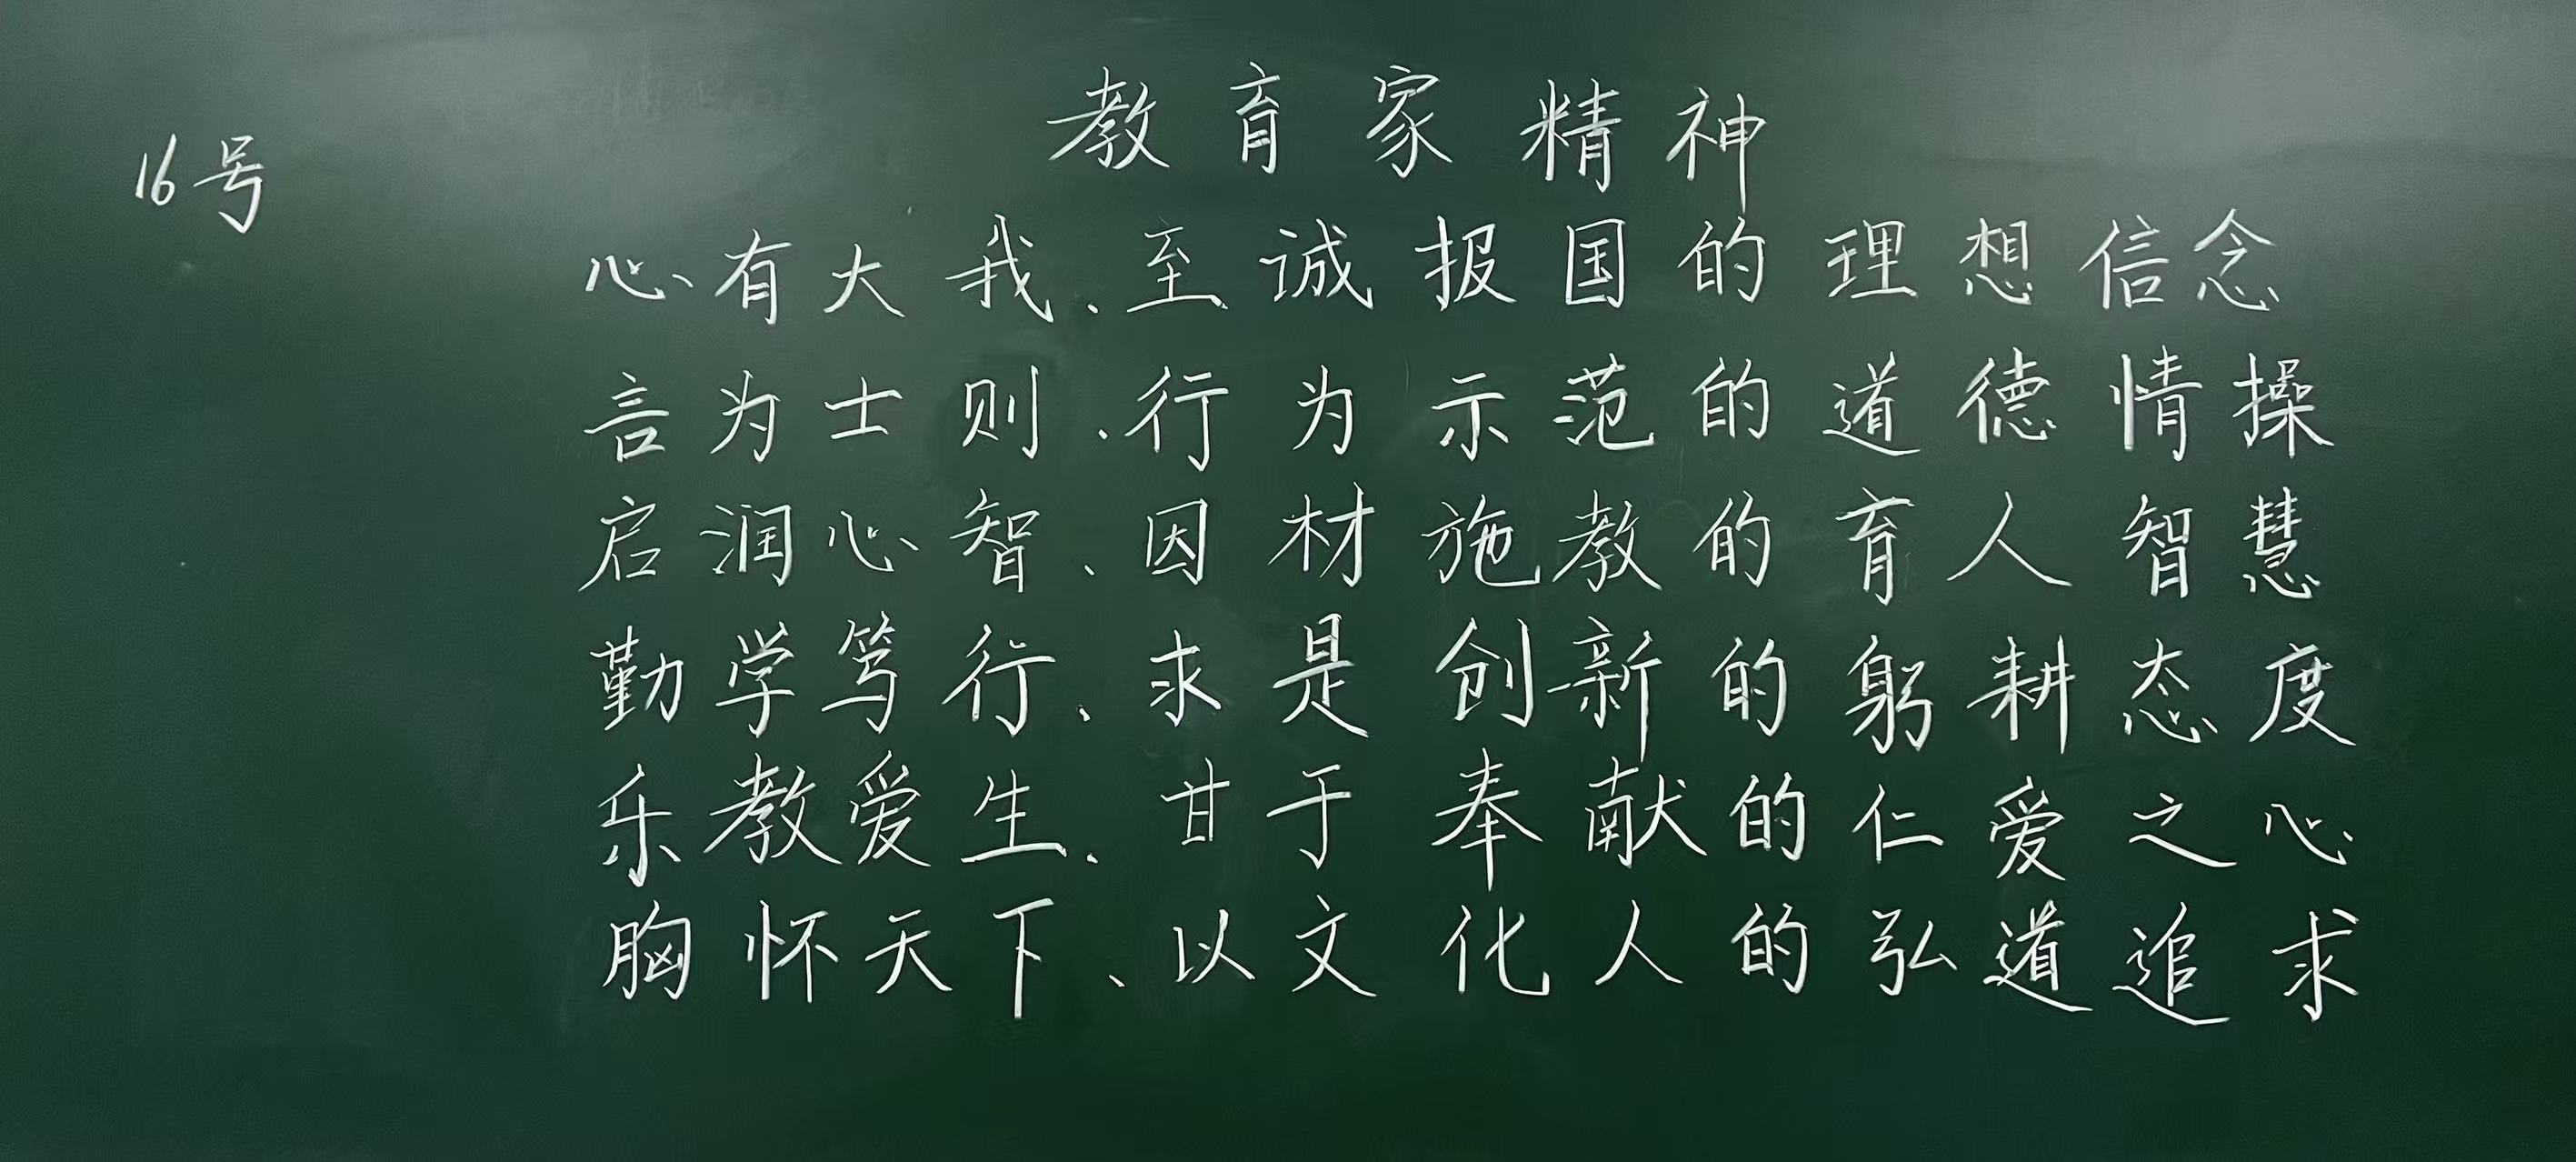 教育家精神
16号
心有大我、至诚报国的理想信念
言为士则、行为示范的道德情操
启润心智、因材施教的育人智慧
勤学笃行、求是创新的躬耕态度
乐教爱生、甘于奉献的仁爱之心
胸怀天下、以文化人的弘道追求